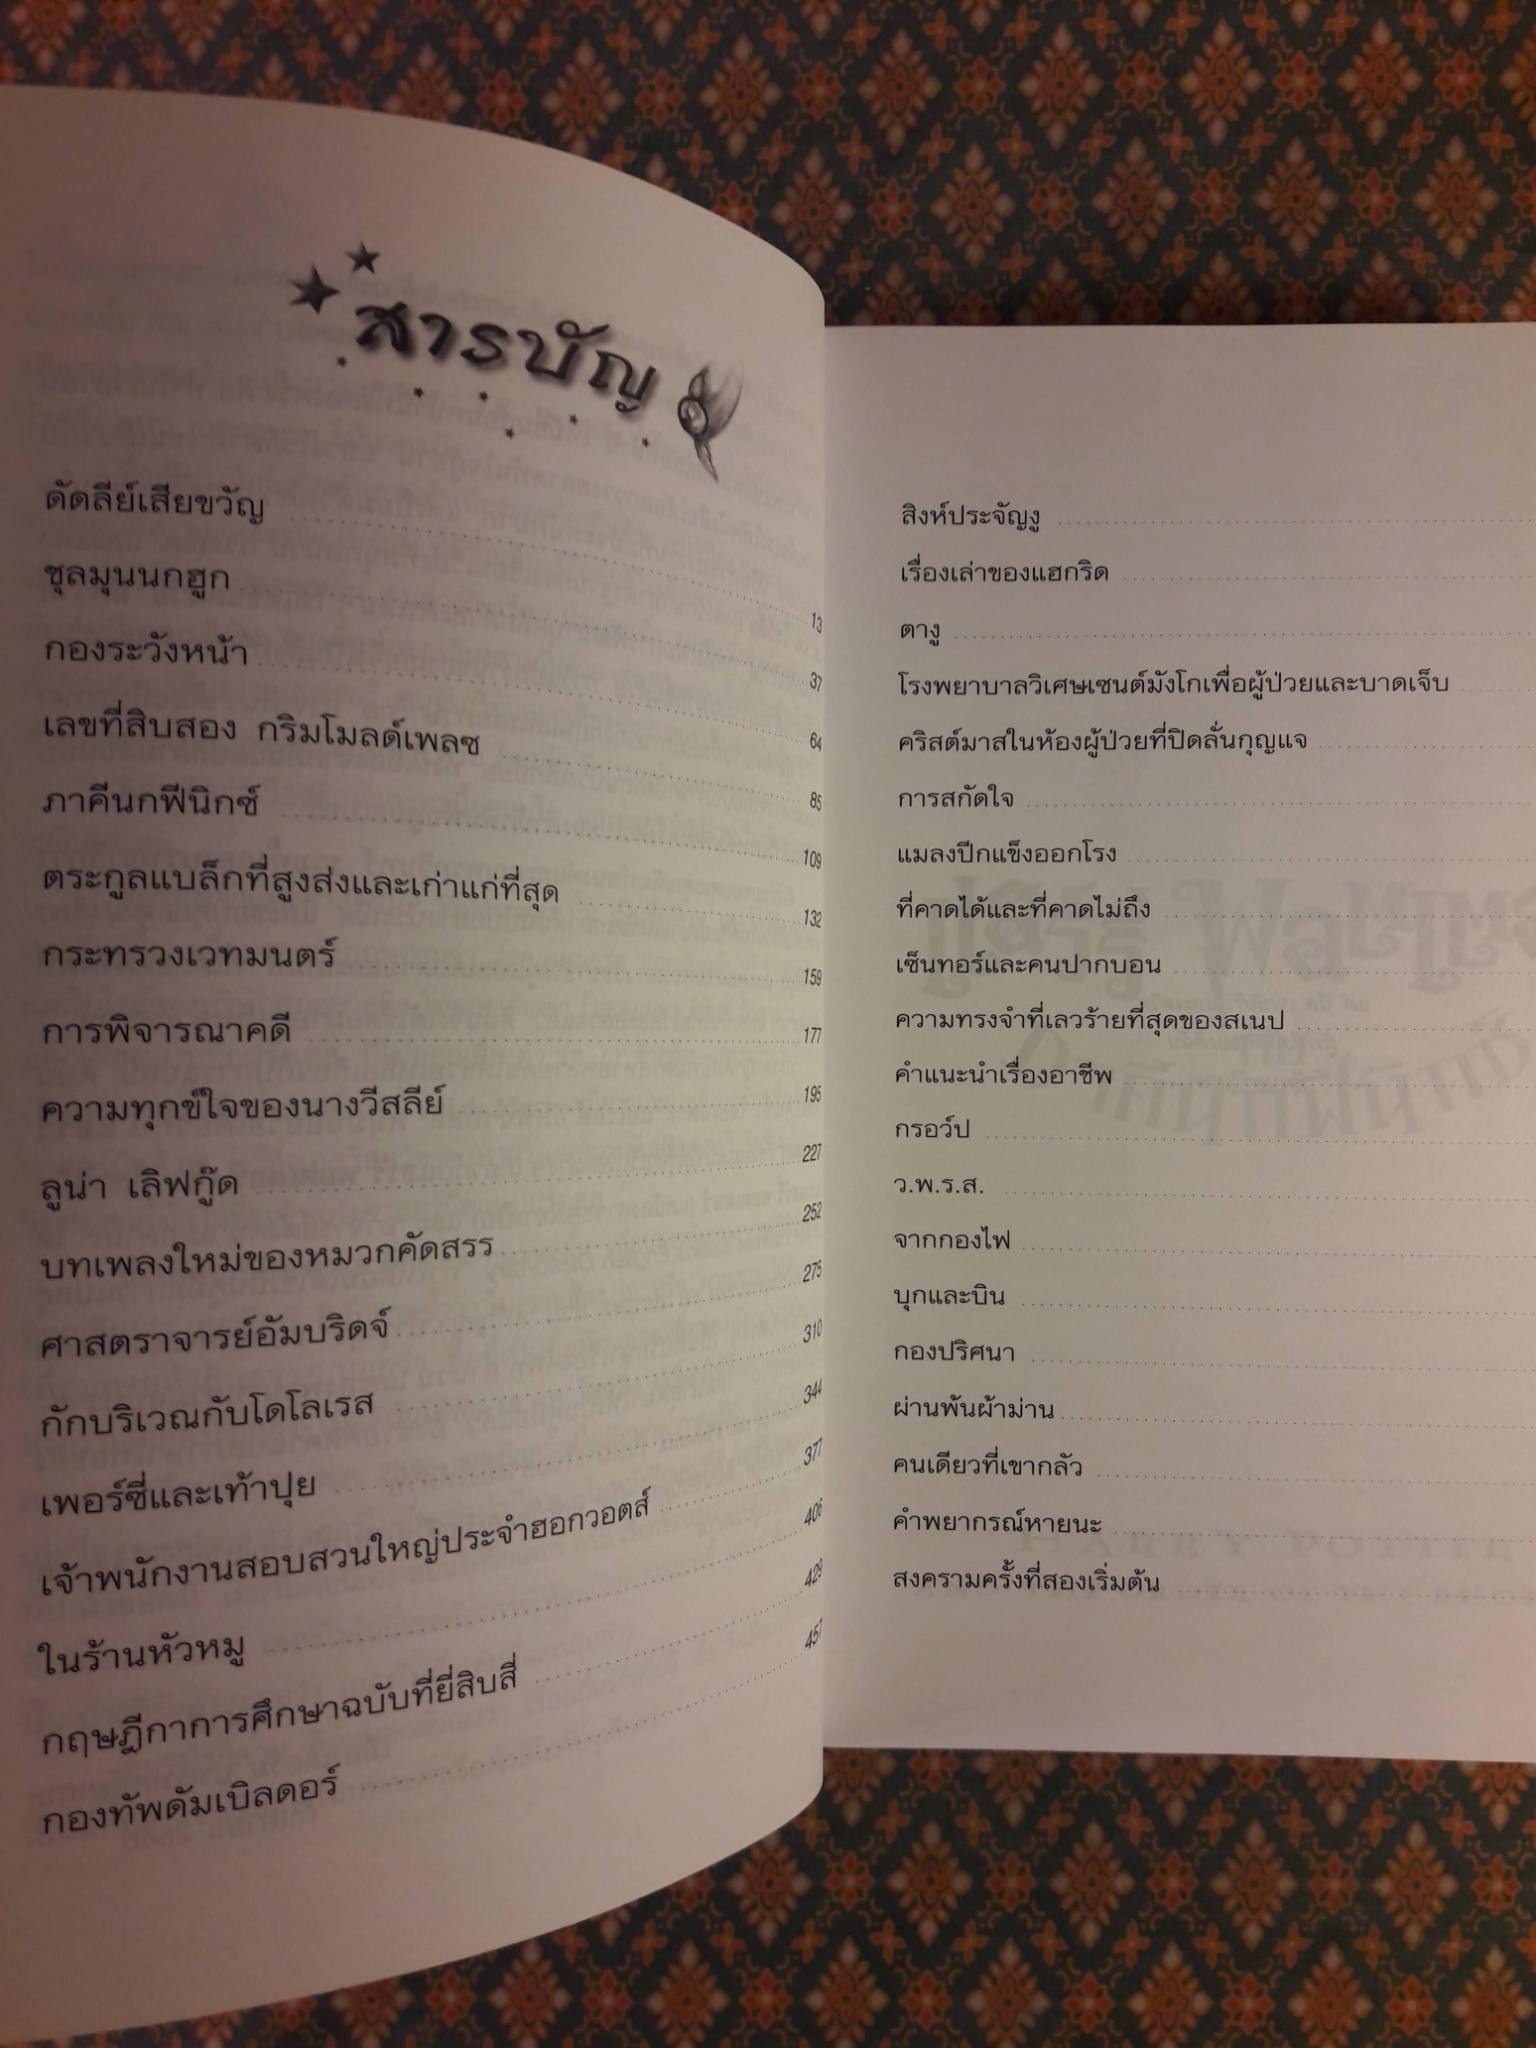 สารบัญ
ดัดลีย์เสียขวัญ 13
ชุลมุนนกฮูก 37
กองระวังหน้า 64
เลขที่สิบสอง กริมโมลด์เพลซ 85
ภาคีนกฟีนิกซ์ 109
ตระกูลแบล็กที่สูงส่งและเก่าแก่ที่สุด 132
กระทรวงเวทมนตร์ 159
การพิจารณาคดี 177
ความทุกข์ใจของนางวีสลีย์ 195
ลูน่า เลิฟกู๊ด 227
บทเพลงใหม่ของหมวกคัดสรร 252
ศาสตราจารย์อัมบริดจ์ 275
กักบริเวณกับโดโลเรส 310
เพอร์ซี่และเท้าปุย 344
เจ้าพนักงานสอบสวนใหญ่ประจำฮอกวอตส์ 377
ในร้านหัวหมู 406
กฤษฎีกาการศึกษาฉบับที่ยี่สิบสี่ 429
กองทัพดัมเบิลดอร์ 457
สิงห์ประจัญงู
เรื่องเล่าของแฮกริด
ตางู
โรงพยาบาลวิเศษเซนต์มังโกเพื่อผู้ป่วยและบาดเจ็บ
คริสต์มาสในห้องผู้ป่วยที่ปิดลั่นกุญแจ
การสกัดใจ
แมลงปีกแข็งออกโรง
ที่คาดได้และที่คาดไม่ถึง
เซ็นทอร์และคนปากบอน
ความทรงจำที่เลวร้ายที่สุดของสเนป
คำแนะนำเรื่องอาชีพ
กรอว์ป
ว.พ.ร.ส.
จากกองไฟ
บุกและบิน
กองปริศนา
ผ่านพ้นผ้าม่าน
คนเดียวที่เขากลัว
คำพยากรณ์หายนะ
สงครามครั้งที่สองเริ่มต้น